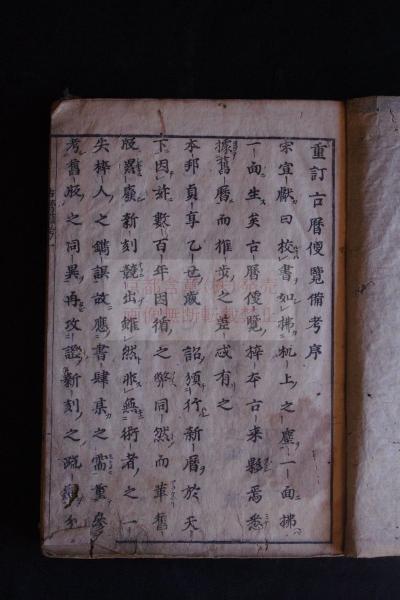 重訂古暦便覧備考序
宋宣獻曰校書如拂机上之塵一面拂
一面生矣古暦便覧梓本古来夥焉悉
據舊暦而推歩之差或有之
本邦貞享乙丑歳 詔頒行新暦於天
下因許數百年因循之弊同然而革舊
版罷廢新刻競出雖然非無術者之一
失梓人之鐫誤故應書肆某之需重參
考舊版之同異再攻證新刻之疏